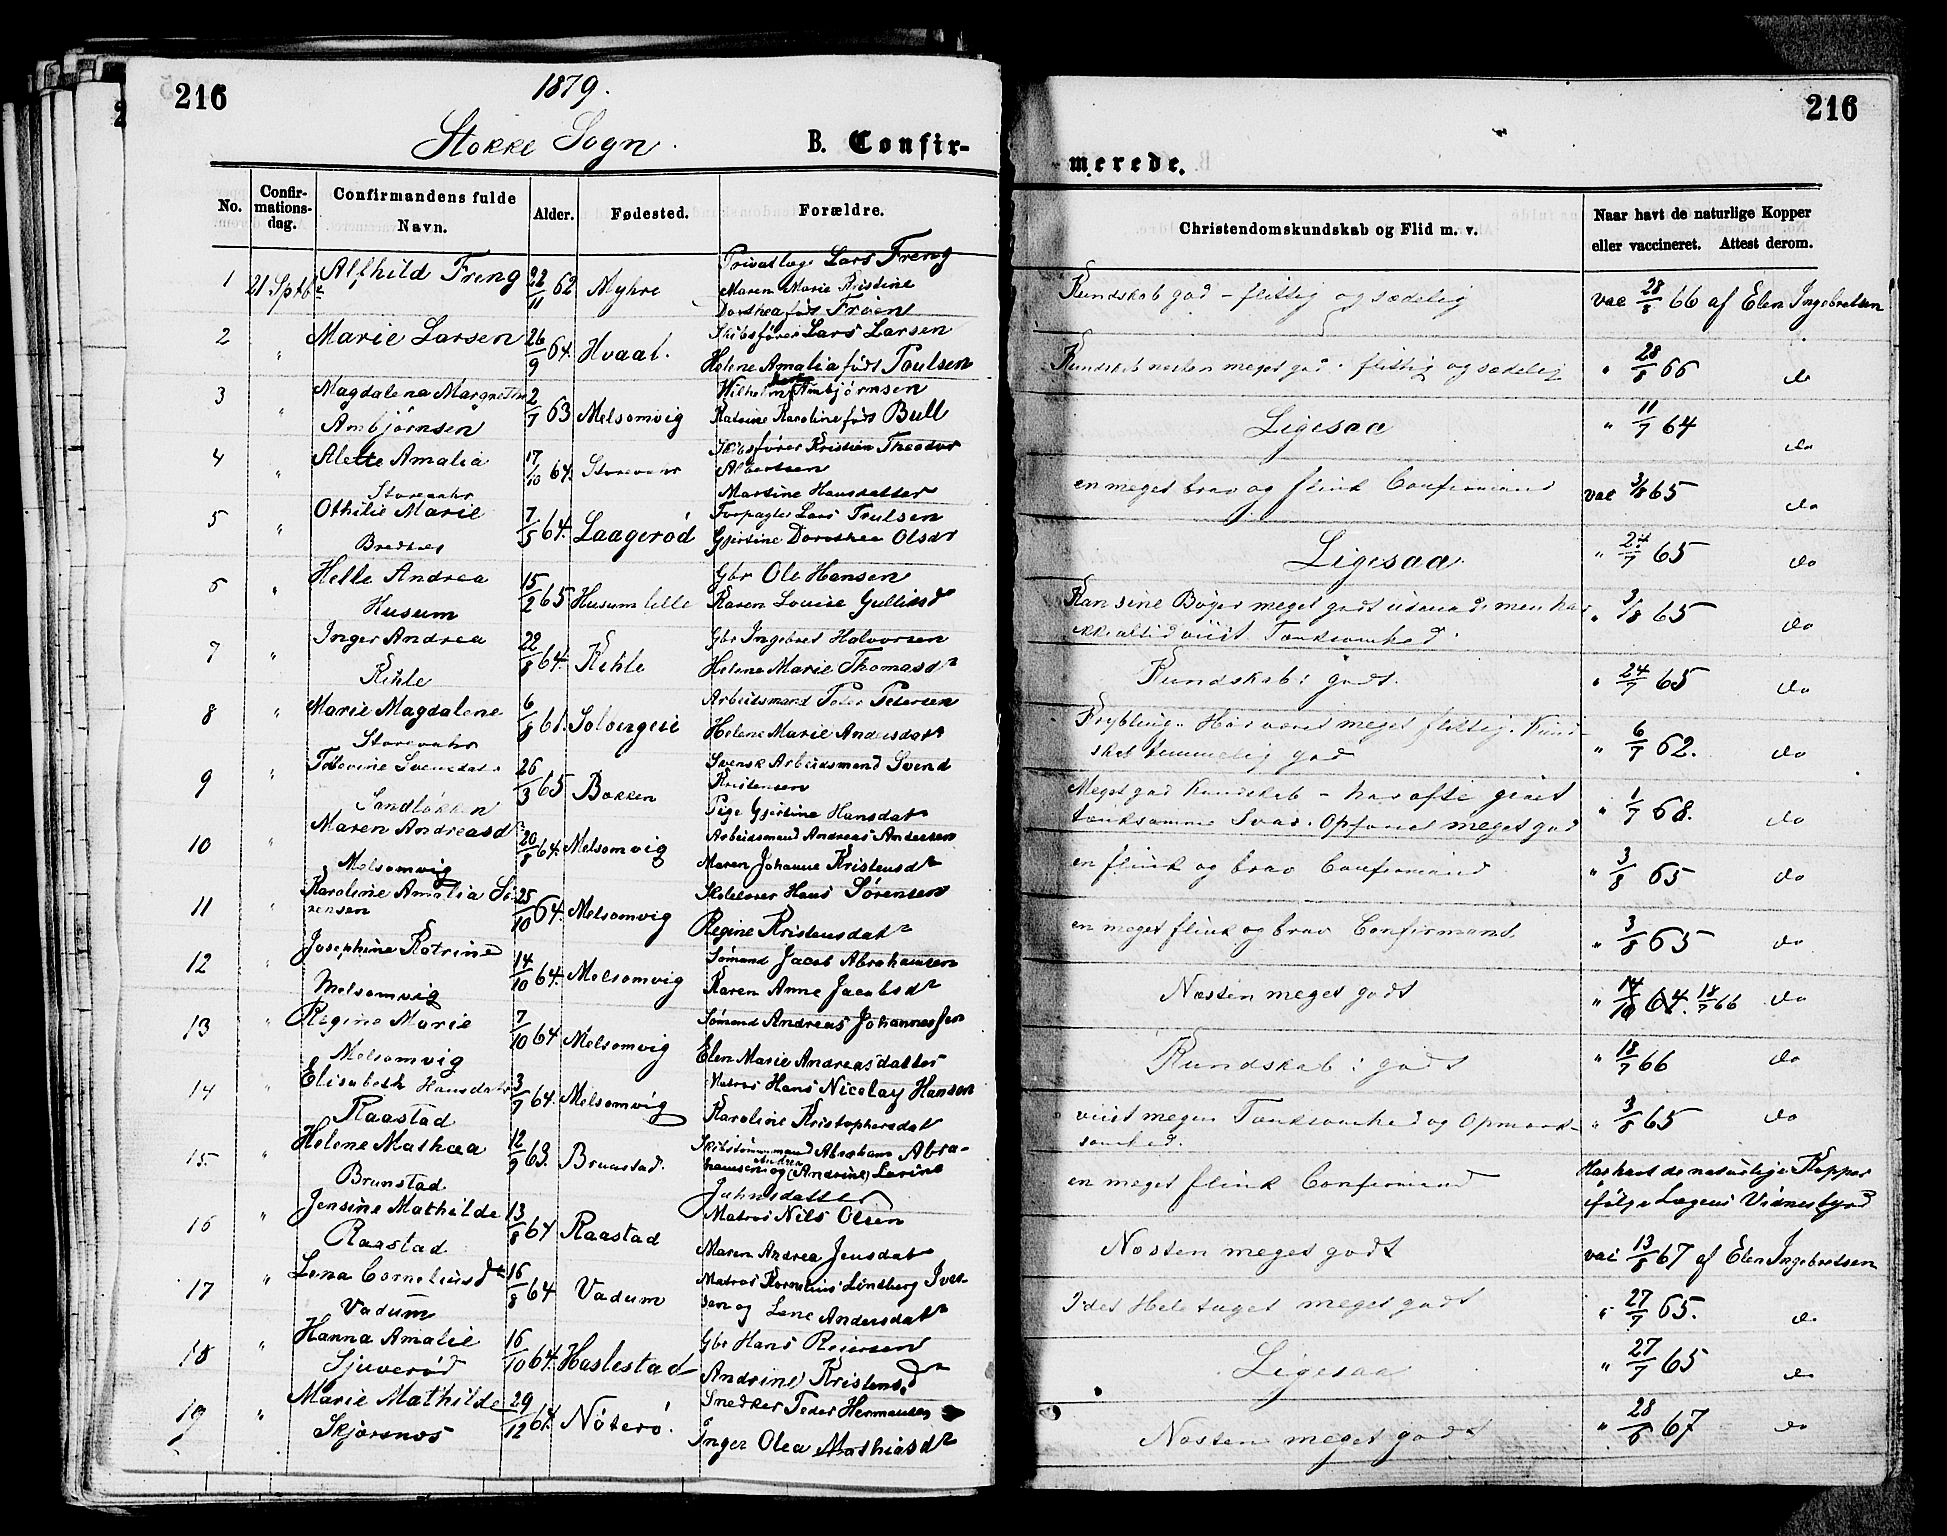 216
1879.
Stokke Sogn.
B. Confir-
No.
Confir-
mations-
dag.
Confirmandens fulde
Navn.
Alder.
Fødested.
Forældre.
1 21 Sptbr Alfhild Freng 22/11 62 Myhre
Lars Freng
Maren Marie Kristine
Dorthea født Frøen
2 " Marie Larsen 26/9 64. Hvaal.
Skibsfører Lars Larsen
Helene Amalia født Poulsen
3 " Magdalena 2/7 63 Melsomvig
Ambjørnsen
Ambjørnsen
Karoline født Bull
4 " Alette Amalia 17/10 64. Storevahr
Storevahr
Skibsfører Kristian Theodor
Albertsen
Martine Hansdatter
5 " Othilie Marie 7/5 64. Laagerød
Forpagter Lars Trulsen
Gjertine Dorothea Olsdr
6 " Helle Andrea 15/2 65 Husum lille
Husum
Gbr Ole Hansen
Karen Lovise
7 " Inger Andrea 22/8 64. Kihle
Kihle
Gbr Ingebret Halvorsen
Helene Marie Thomasdr
8 " Marie Magdalene 6/8 61. Solbergeie
Storevahr
Arbeidsmand Peter Petersen
Helene Marie Andersdatr
9 " 26/3 65 Bakken
Svensk Arbeidsmand Svend
Kristensen
Pige Gjertine Hansdatr
10 " Maren Andreasdr 20/8 64. Melsomvig
Melsomvig
Arbeidsmand Andreas Andersen
Maren Johanne Kristensdtr
11 " Karoline Amalia Sø- 25/10 64. Melsomvig
rensen
Hans Sørensen
Regine Kristensdatr
12 " Josephine Katrine 14/10 64. Melsomvig
Melsomvig
Sømand Jacob Abrahamsen
Karen Anne Jacobsdtr
13 " Regine Marie 7/10 64 Melsomvig
Melsomvig
Sømand Andreas Johannesen
Elen Marie Andreasdatter
14 " Elisabeth Hansdatr 3/7 64. Melsomvig
Raastad
Matros Hans Nicolay Hansen
Karoline Kristophersdat
15. " Helene Mathea 12/9 63. Brunstad.
Brunstad
Skibstømmermand Abraham Abra-
hamsen og Andrea (Andrine) Lovine
Jahnsdatter
16 " Jensine Mathilde 13/8 64 Raastad
Raastad
Matros Nils Olsen
Maren Andrea Jensdatr
17 " Lena Corneliusdtr 16/8 64 Vadum
Vadum
Matros Kornelius Lindberg Iver-
sen og Lene Andersdatr
18 " Hanna Amalie 16/10 64. Haslestad
Sjuverød
Gbr Hans Reiersen
Andrine Kristensdtr
19 " Marie Mathilde 29/12 64. Nøterø.
Skjærsnes
Snedker Peder Hermansen
Inger Olea Mathiasdtr
216
merede.
Christendomskundskab og Flid m. v.
Naar havt de naturlige Kopper
eller vaccineret. Attest derom.
Kundskab god - flittig og sædelig vac 28/8 66 af Elen Ingebretsen
Kundskab næsten meget god. flittig og sædelig " 28/8 66 do
Ligesaa " 11/7 64 do
en meget brav og flink Confirmand vac 3/8 65 do
Ligesaa " 65 do
Kan sine Bøger meget godt udenad, men har " 3/8 65 do
ikke altid viist Tænksomhed.
Kundskab: godt. " 24/7 65 do
Har været meget flittig. Kund- " 6/7 62. do
skab temmelig god
Meget god Kundskab - har ofte givet " 1/7 68. do
tænksomme Svar. Opførsel meget god
en flink og brav Confirmand " 3/8 65 do
en meget flink og brav Confirmand. " 3/8 65 do
Næsten meget godt " 14/10 64. 18/7 66 do
Kundskab: godt " 18/7 66 do
viist megen Tænksomhed og Opmærk- " 3/8 65 do
somhed.
en meget flink Confirmand Har havt de naturlige Kopper
ifølge Lægens Vidnesbyrd
Næsten meget godt vac 13/8 67 af Elen Ingebretsen
I det Hele taget meget godt " 27/7 65. do
Ligesaa " 27/7 65 do
Næsten meget godt " 28/8 67 do